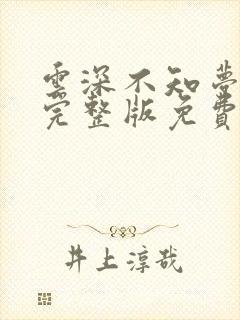 雲深不知夢
完整版免費
井上淳哉